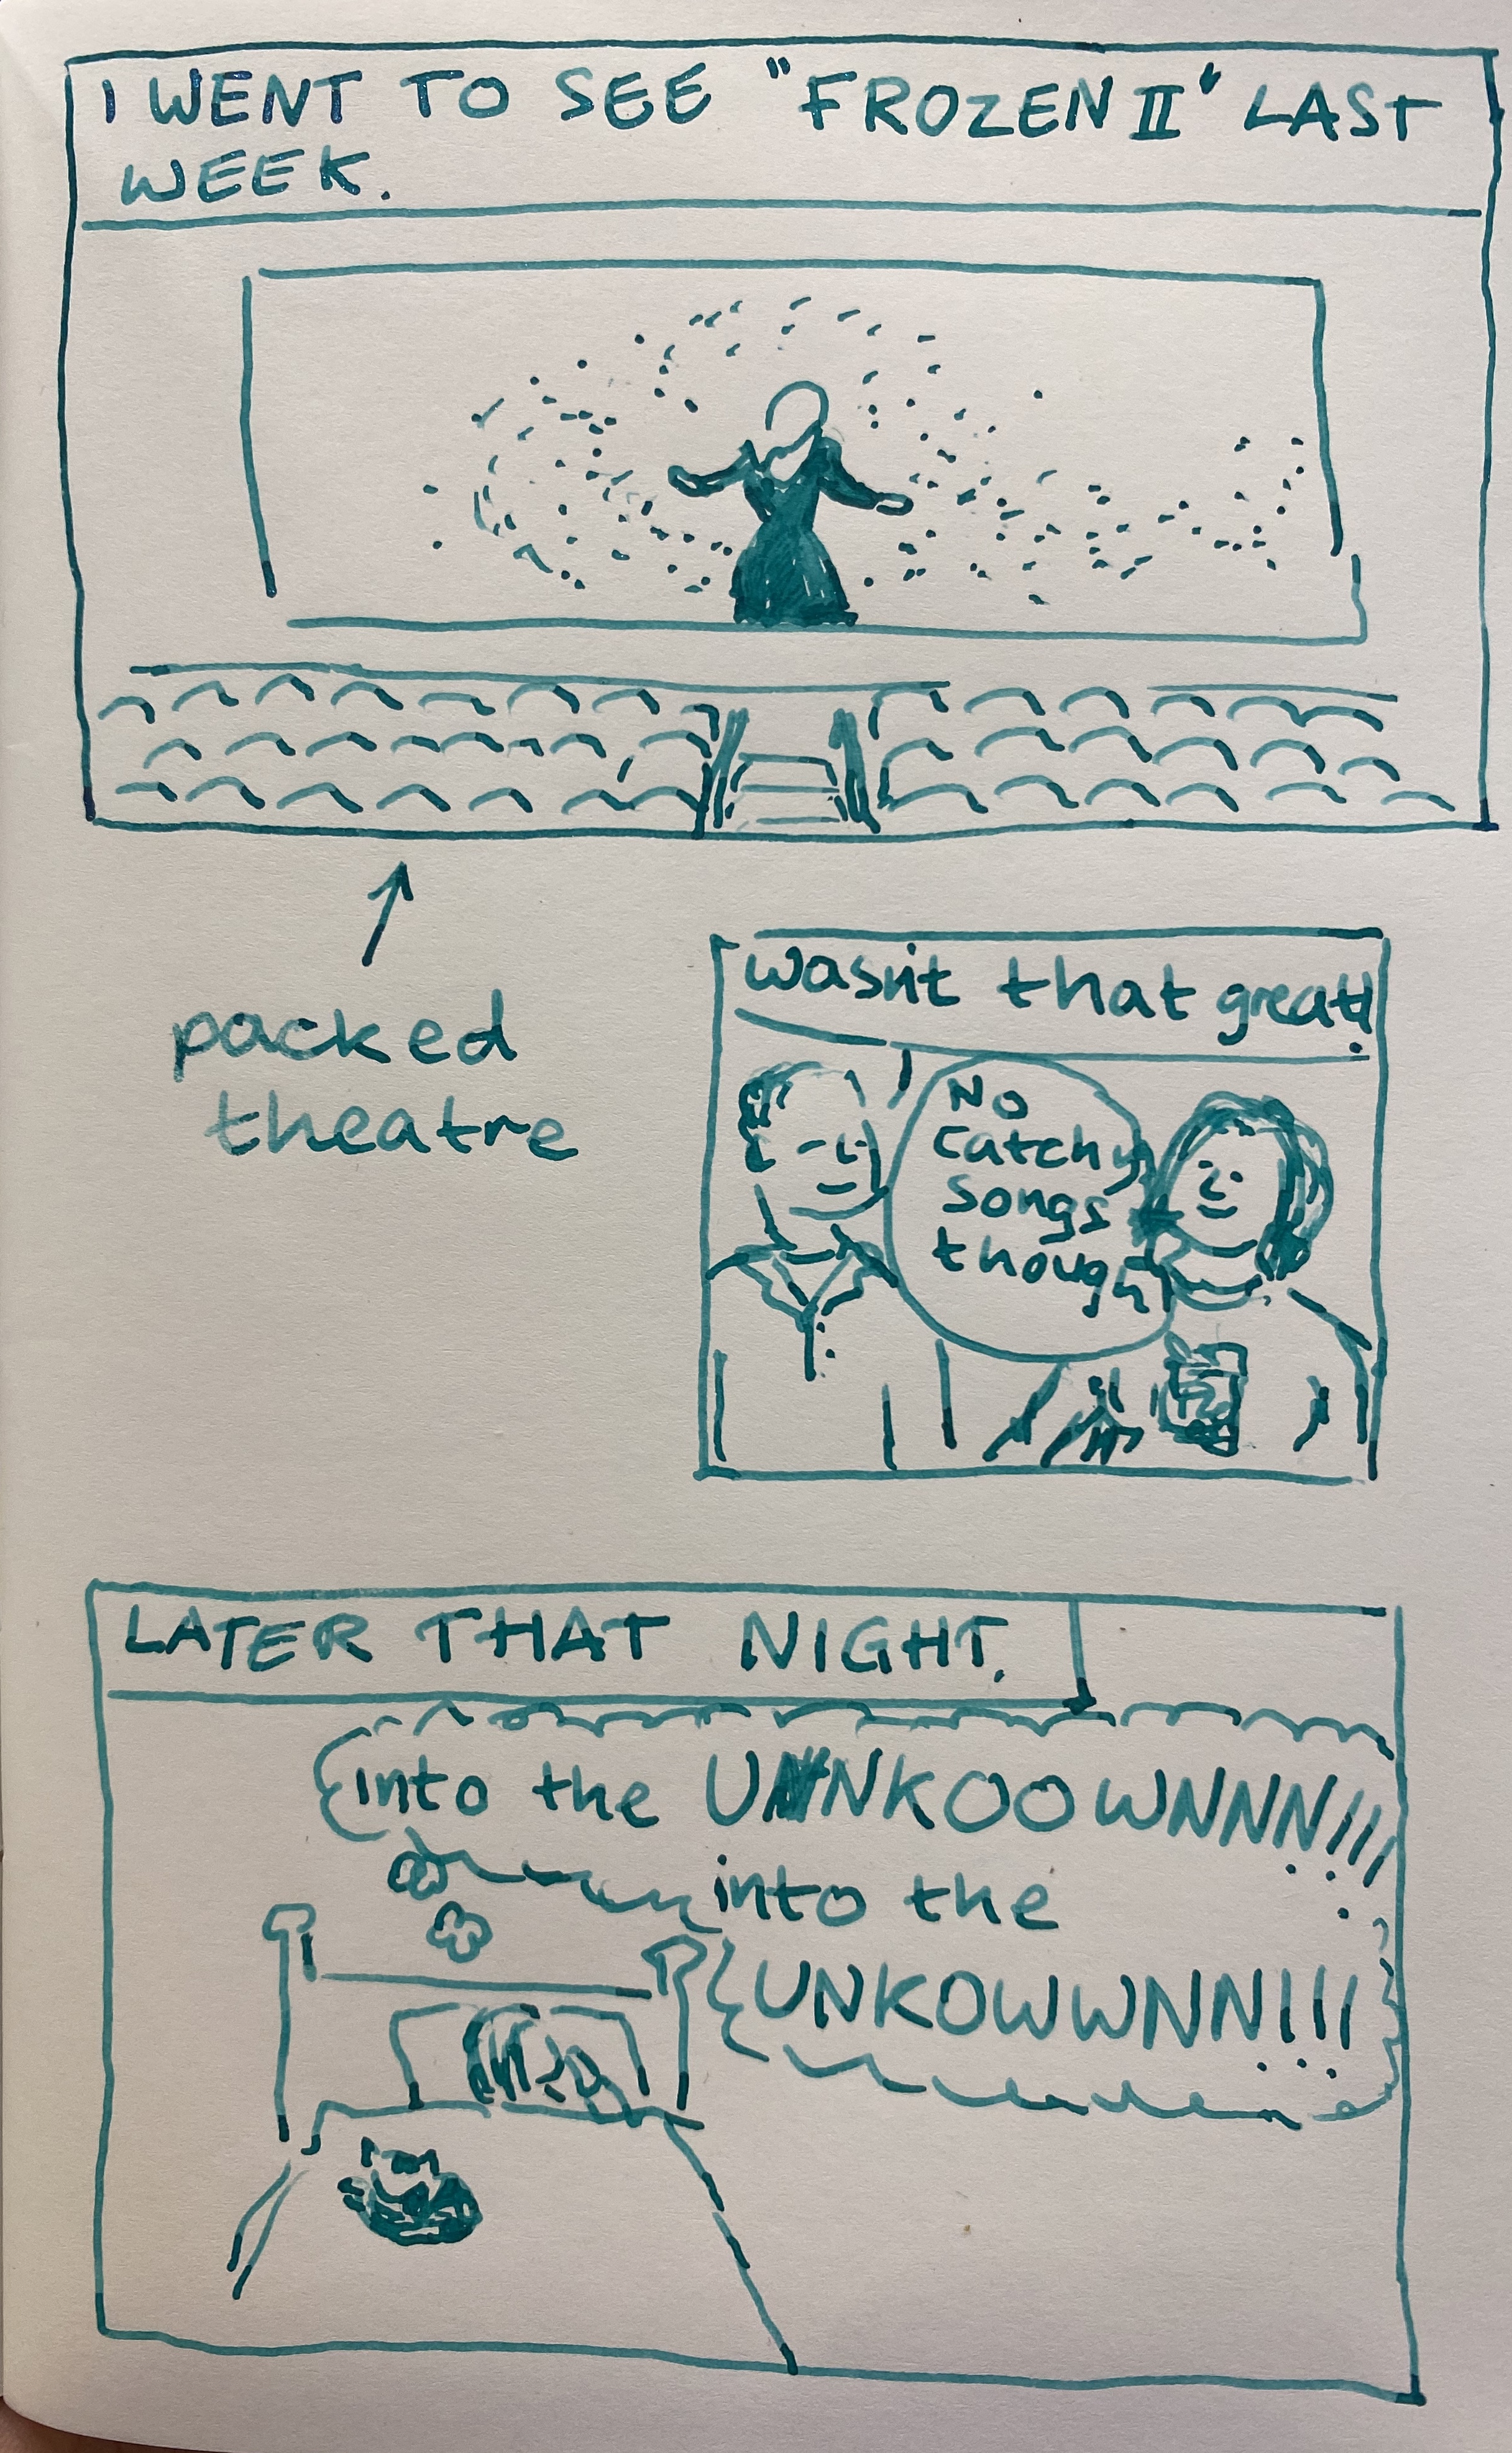 I WENT TO SEE "FROZEN II" LAST
WEEK.
packed
theatre
wasn't that great!
No
catchy
songs
though
LATER THAT NIGHT.
into the UNNKOOWNNN!!!
into the
UNKOWWNN!!!